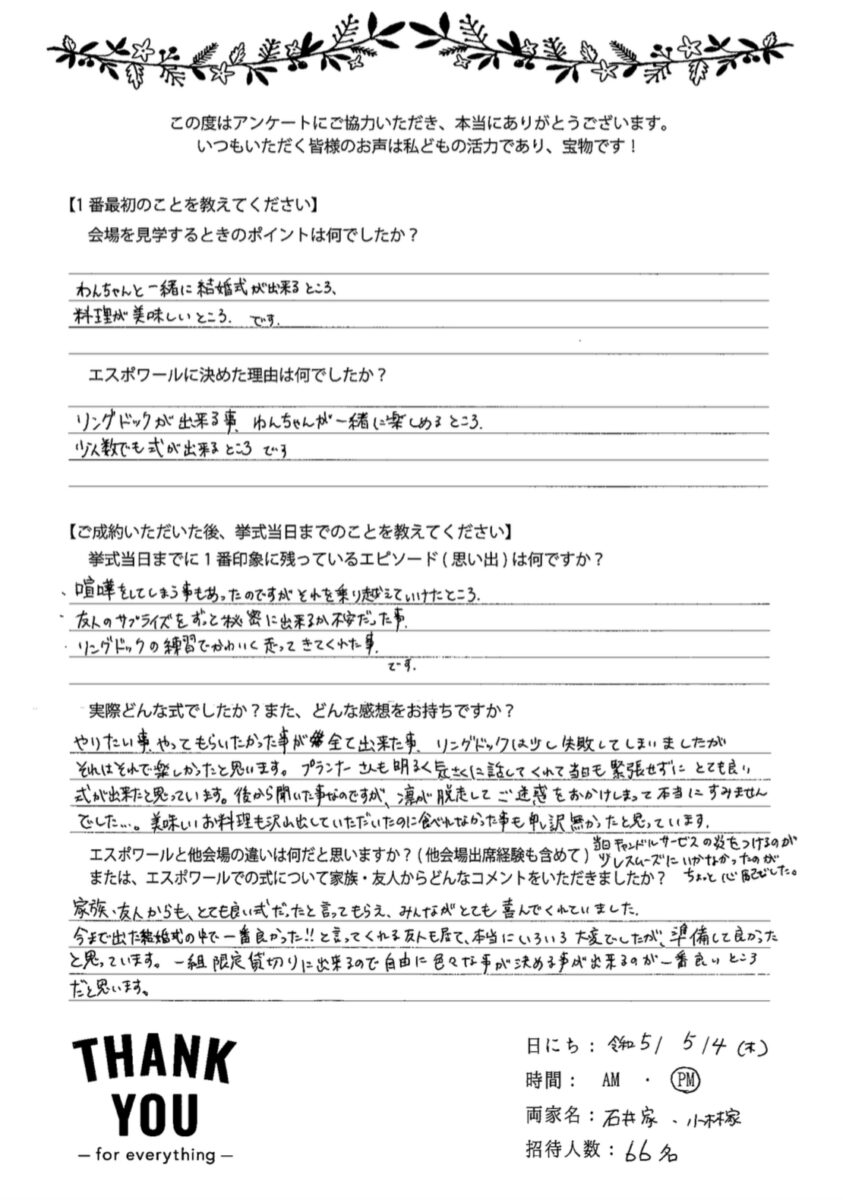 この度はアンケートにご協力いただき、本当にありがとうございます。
いつもいただく皆様のお声は私どもの活力であり、宝物です！
【1番最初のことを教えてください】
会場を見学するときのポイントは何でしたか？
わんちゃんと一緒に結婚式が出来るところ、
料理が美味しいところ、です。
エスポワールに決めた理由は何でしたか？
リングドックが出来る事、わんちゃんが一緒に楽しめるところ、
少人数でも式が出来るところ です
【ご成約いただいた後、挙式当日までのことを教えてください】
挙式当日までに1番印象に残っているエピソード(思い出)は何ですか？
・喧嘩をしてしまう事もあったのですがそれを乗り越えていけたところ、
・友人のサプライズをずっと秘密に出来るか不安だった事、
・リングドックの練習でかわいく走ってきてくれた事、
です。
実際どんな式でしたか？また、どんな感想をお持ちですか？
やりたい事、やってもらいたかった事が全て出来た事、リングドックは少し失敗してしまいましたが
それはそれで楽しかったと思います。プランナーさんも明るく気さくに話してくれて当日も緊張せずにとても良い
式が出来たと思っています。後から聞いた事なのですが、凛が脱走してご迷惑をおかけしまって本当にすみません
でした…。美味しいお料理も沢山出していただいたのに食べれなかった事も申し訳無かったと思っています。
当日キャンドルサービスの火をつけるのが
少しスムーズにいかなかったのが
ちょっと心配でした。
エスポワールと他会場の違いは何だと思いますか？(他会場出席経験も含めて)
または、エスポワールでの式について家族・友人からどんなコメントをいただきましたか？
家族・友人からも、とても良い式だったと言ってもらえ、みんながとても喜んでくれていました。
今まで出た結婚式の中で一番良かった!!と言ってくれる友人も居て、本当にいろいろ大変でしたが、準備して良かった
と思っています。一組限定貸切りに出来るので自由に色々な事が決める事が出来るのが一番良いところ
だと思います。
THANK
YOU
– for everything –
日にち：令和5/ 5/4 (木)
時間： AM ・ PM
両家名：石井家、小林家
招待人数：66名